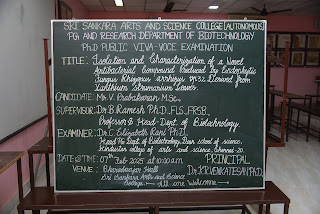 SRI SANKARA ARTS AND SCIENCE COLLEGE [AUTONOMOUS]
PG AND RESEARCH DEPARTMENT OF BIOTECHNOLOGY
Ph.D PUBLIC VIVA-VOCE EXAMINATION
TITLE: Isolation and Characterization of a Novel
Antibacterial Compound Produced by Endophytic
fungus Rhizopus arrhizus Derived from
Xanthium Strumarium Leaves
CANDIDATE: Mr. V. Prabakaran, M.Sc.,
SUPERVISOR: Dr. B. Ramesh Ph.D.
Professor & Head-Dept. of Biotechnology
EXAMINER: Dr. C. Elizabeth Rani Ph.D.,
Head PG Dept. of Biotechnology, School of science,
Hindustan college of arts and science, Chennai
DATE @ TIME: 07th Feb 2025 at 10:00 a.m
PRINCIPAL
VENUE: Hall
Dr. K.R. VENKATESAN Ph.D.,
Sri Sankara Arts and Science
College. All are Welcome